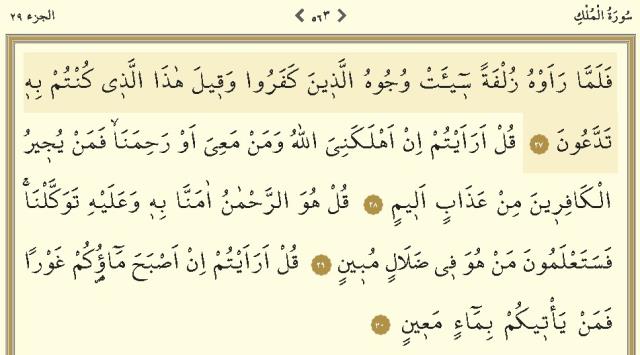 سُورَةُ الْمُلْكِ ٥٦٣ الجزء ٢٩
فَلَمَّا رَاَوْهُ زُلْفَةً سٖٓيـَٔتْ وُجُوهُ الَّذٖينَ كَفَرُوا وَقٖيلَ هٰذَا الَّذٖى كُنْتُمْ بِهٖ
تَدَّعُونَ ٢٧ قُلْ اَرَاَيْتُمْ اِنْ اَهْلَكَنِىَ اللّٰهُ وَمَنْ مَعِىَ اَوْ رَحِمَنَاۙ فَمَنْ يُجٖيرُ
الْكَافِرٖينَ مِنْ عَذَابٍ اَلٖيمٍ ٢٨ قُلْ هُوَ الرَّحْمٰنُ اٰمَنَّا بِهٖ وَعَلَيْهِ تَوَكَّلْنَاۚ
فَسَتَعْلَمُونَ مَنْ هُوَ فٖى ضَلَالٍ مُبٖينٍ ٢٩ قُلْ اَرَاَيْتُمْ اِنْ اَصْبَحَ مَٓاؤُ۬كُمْ غَوْرًا
فَمَنْ يَأْتٖيكُمْ بِمَٓاءٍ مَعٖينٍ ٣٠